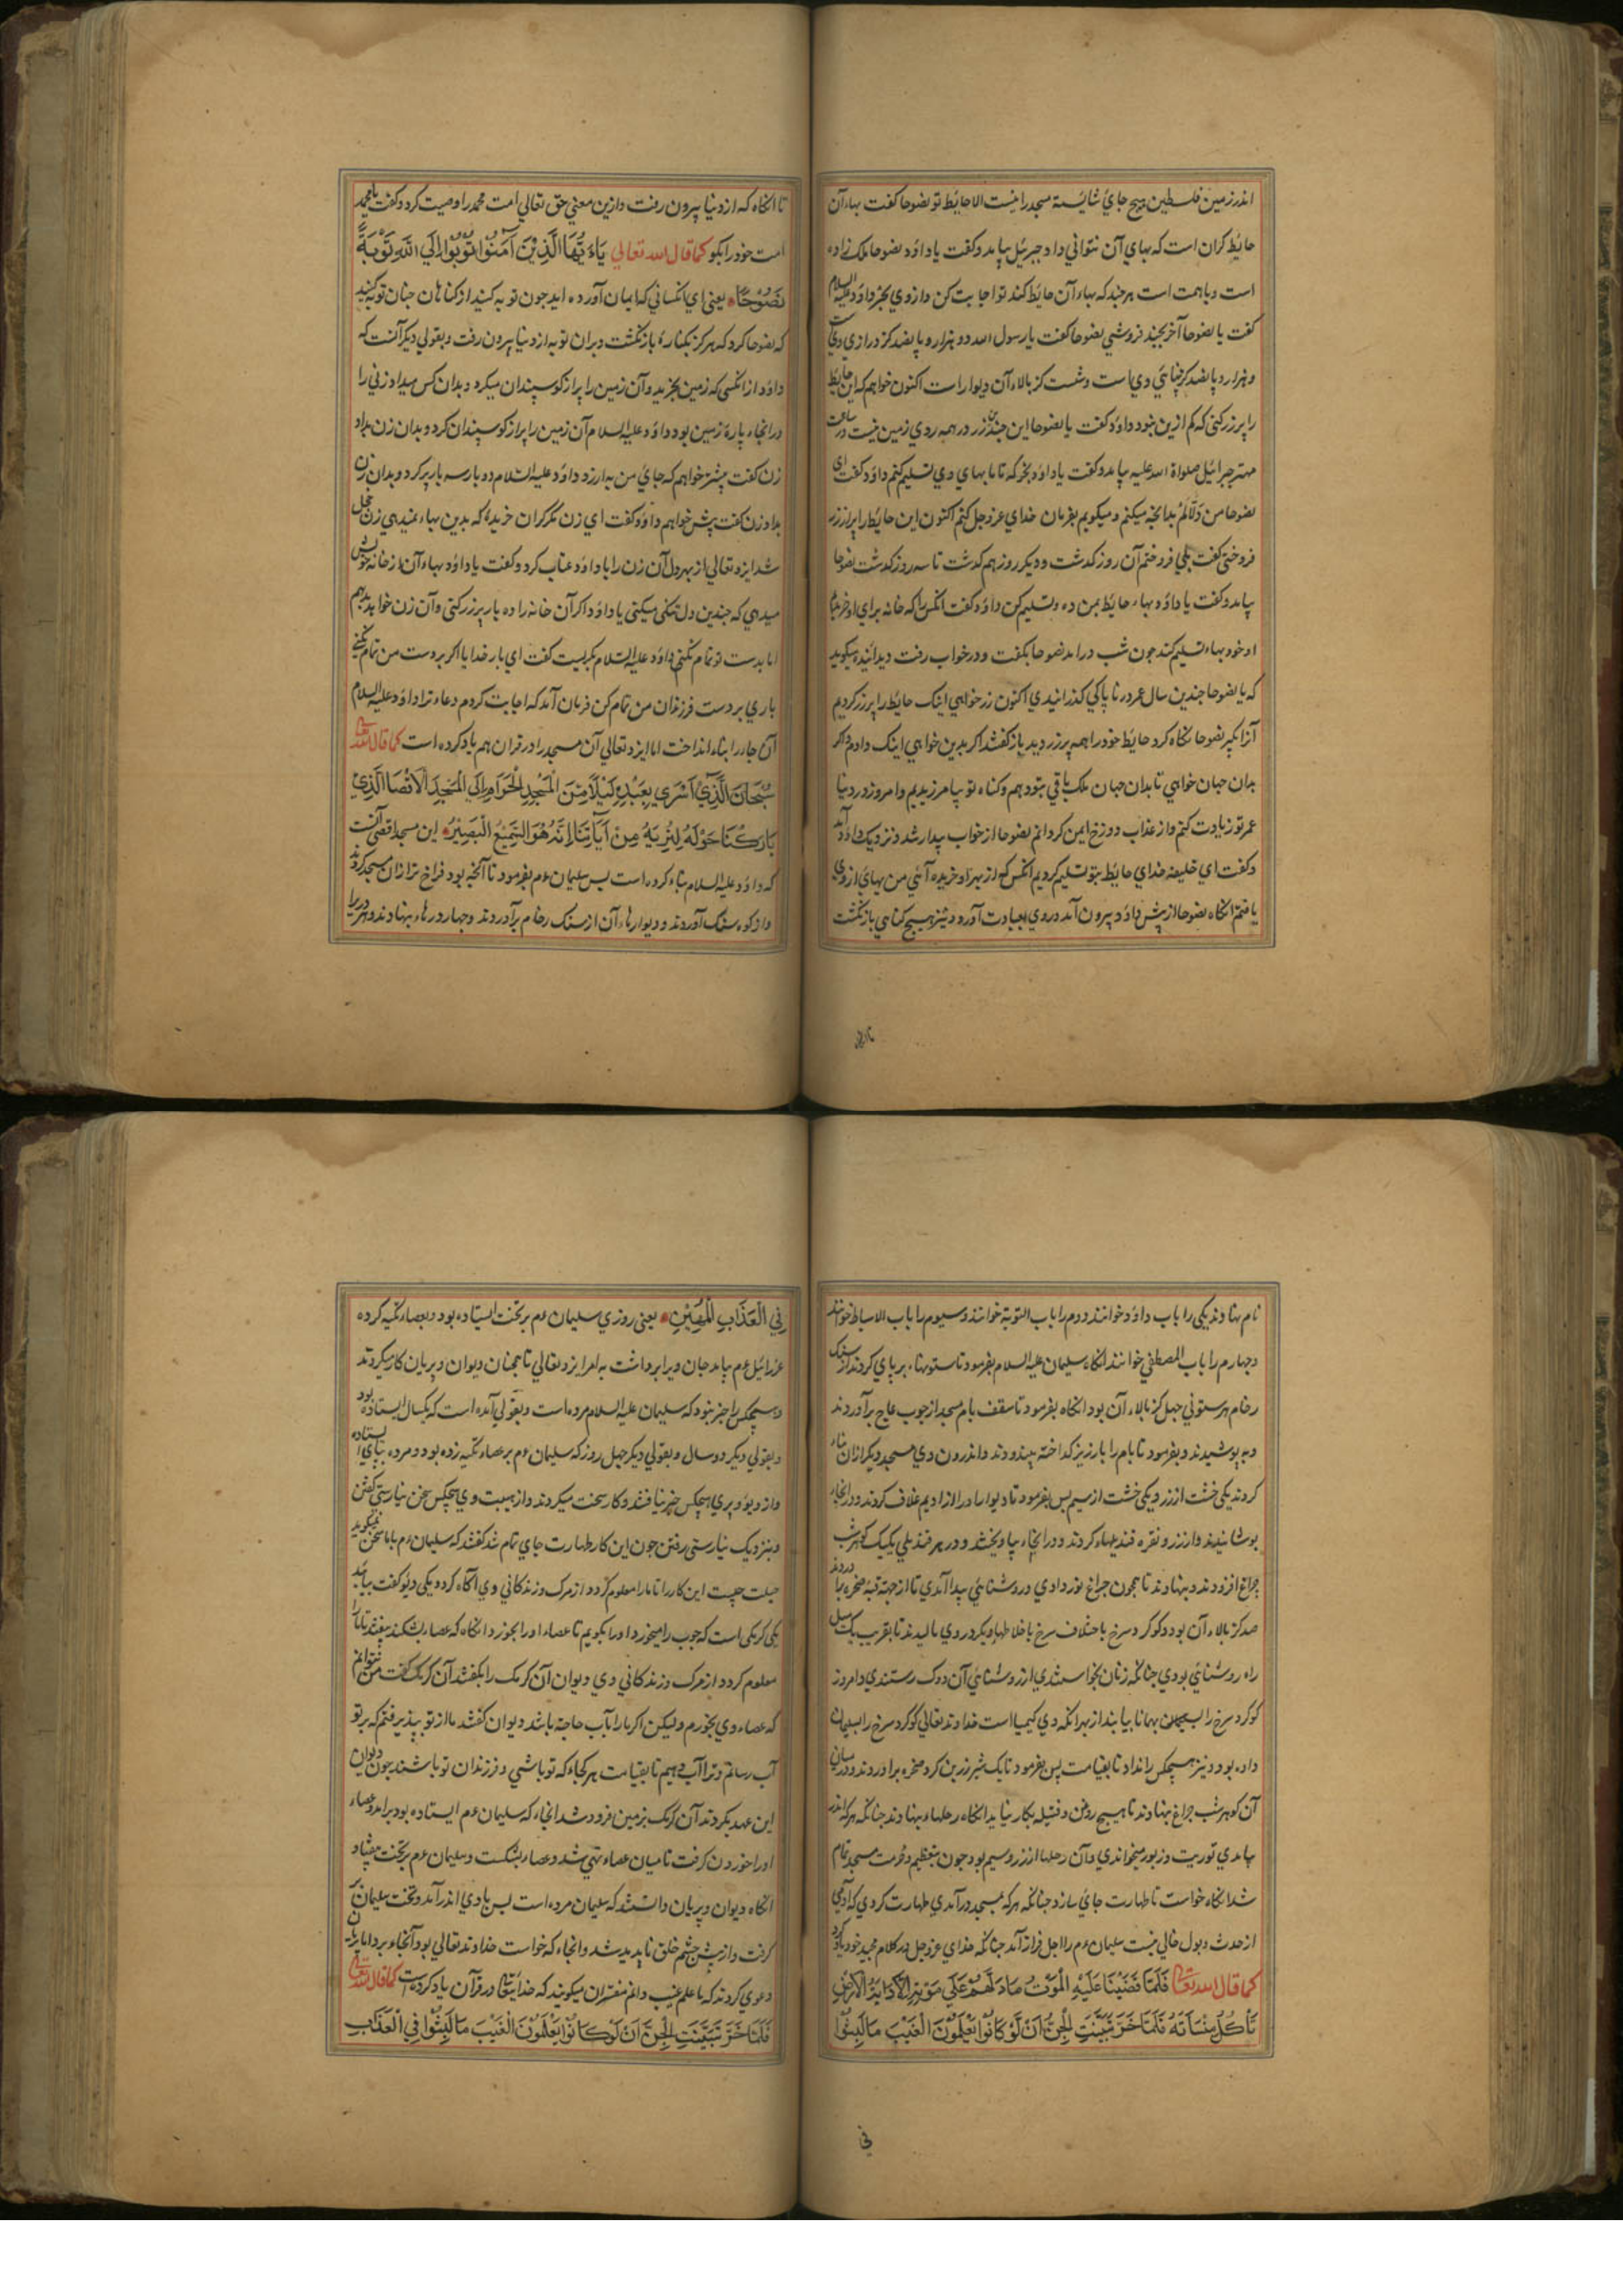 اندر زمین فلسطین هیچ جای شایسته مسجد را نیست الا حایط تو نضوحا کفت بهاء آن
حایط کران است که بهای آن نتوانی داد جبرئیل بیامد و کفت یا داود نضوحا ملک زاده
است و با همت است هر جند که بهاء آن حایط کند تو اجابت کن و از وی بخر داود علیه السلام
کفت یا نضوحا آخر بجند فروشی نضوحا کفت یا رسول الله دو هزار و پانصد کز درازی وی است
و هزار و پانصد کز پهنای وی است و شست کز بالاء آن دیوار است اکنون خواهم که این حایط
را پر زر کنی که کم ازین نبود داود کفت یا نضوحا این جندین زر در همه روی زمین نیست در ساعت
مهتر جبرائیل صلواة الله علیه بیامد و کفت یا داود بخر که تا ما بهای وی تسلیم کنم داود کفت ای
نضوحا من دلالم بدانجه میکنم و میکویم بفرمان خدای عز و جل کنم اکنون این حایط را پر از زر
فروختی کفت بلی فروختم آن روز کذشت و دیکر روز هم کذشت تا سه روز کذشت نضوحا
بیامد و کفت یا داود بهاء حایط بمن ده و تسلیم کن داود کفت آنکس را که خانه برای او خریدم
او خود بهاء تسلیم کند جون شب درامد نضوحا بخفت و در خواب رفت دید آینده میکوید
که یا نضوحا جندین سال عمر در ناپاکی کذرانیدی اکنون زر خواهی اینک حایط را پر زر کردیم
آنرا بکیر نضوحا نکاه کرد حایط خود را همه پر زر دید باز کفتند اکر بدین خواهی اینک دادم و اکر
بدان جهان خواهی تا بدان جهان ملک باقی بتو دهم و کناه تو بیامرزیدیم و امروز در دنیا
عمر تو زیادت کنم و از عذاب دوزخ ایمن کردانم نضوحا از خواب بیدار شد و نزدیک داود آمد
و کفت ای خلیفه خدای حایط بتو تسلیم کردیم آنکس که از بهر او خریده آنی من بهای از وی
یافتم آنکاه نضوحا از پیش داود بیرون آمد و روی بعبادت آورد و نیز بهیج کناهی باز نکشت
تا آنکاه که از دنیا بیرون رفت و ازین معنی حق تعالی امت محمد را وصیت کرد و کفت یا محمد
امت خود را بکو کما قال الله تعالی یَاءَیُّهَا الَّذِیْنَ آمَنُوْا تُوْبُوْا اِلَی اللّٰهِ تَوْبَةً
نَصُوْحًا یعنی ای آنکسانی که ایمان آورده اید جون توبه کنید از کناهان جنان توبه کنید
که نضوحا کرد که هرکز بکناره باز نکشت و بران توبه از دنیا بیرون رفت و بقولی دیکر آنست که
داود از انکسی که زمین بخرید و آن زمین را پر از کوسپندان میکرد و بدان کس میداد زنی را
در انجا پاره زمین بود داود علیه السلام آن زمین را پر از کوسپندان کرد و بدان زن بداد
زن کفت بیشتر خواهم که جای من به ارزد داود علیه السلام دو بار سه بار پر کرد و بدان زن
بداد زن کفت بیش خواهم داود کفت ای زن مکر کران خریدهٔ که بدین بهاء نمیدهی زن خجل
شد ایزد تعالی از بهر دل آن زن را با داود عتاب کرد و کفت یا داود بهاء آن از خانه خویش
میدهی که جندین دل تنکی میکنی یا داود اکر آن خانه را ده بار پر زر کنی و آن زن خواهد بدهم
اما بدست تو تمام نکنم داود علیه السلام بکریست کفت ای بار خدایا اکر بر دست من تمام نکنی
باری بر دست فرزندان من تمام کن فرمان آمد که اجابت کردم دعاء ترا داود علیه السلام
آن جا را بناء انداخت اما ایزد تعالی آن مسجد را در قران هم یاد کرده است کما قال الله تعالی
سُبْحَانَ الَّذِیْ اَسْرَی بِعَبْدِهِ لَیْلًا مِنَ الْمَسْجِدِ الْحَرَامِ اِلَی الْمَسْجِدِ الْاَقْصَا الَّذِیْ
بَارَکْنَا حَوْلَهُ لِنُرِیَهُ مِنْ آیَاتِنَا اِنَّهُ هُوَ السَّمِیْعُ الْبَصِیْرُ این مسجد اقصی آنست
که داود علیه السلام بناء کرده است بس سلیمان ءم بفرمود تا آنجه بود فراخ تر ازان مسجد کردند
و از کوه سنک آوردند و دیوارهاء آن از سنک رخام برآوردند و جهار درهاء بنهادند و هر دریرا
نام نهادند یکی را باب داود خوانند و دوم را باب التوبة خوانند و سیوم را باب الاسباط خوانند
و جهارم را باب المصطفی خوانند آنکاه سلیمان علیه السلام بفرمود تا ستونهاء بر پای کردند از سنک
رخام هر ستونی جهل کز بالاء آن بود آنکاه بفرمود تا سقف بام مسجد از جوب عاج برآوردند
و بپوشیدند و بفرمود تا بام را با رزیز کداخته بیندودند و اندرون وی مسجد دیکر ازان بناء
کردند یکی خشت از زر و یکی خشت از سیم بس بفرمود تا دیوارها در از ادیم غلاف کردند و در انجاء
بوشانیدند و از زر و نقره قندیلهاء کردند و در انجاء بیاویختند و در هر قندیلی یکیک کوهر شب
جراغ افزودند و بنهادند تا همجون جراغ نور دادی و روشنایی پیدا آمدی تا از جهة قبهٔ صخره را
صد کز بالاء آن بود و کوکرد سرخ با ختلاف سرخ با خلاطها و بکرد روی مالیدند تا بقریب یک میل
راه روشنایی بودی جنانکه زنان بخواستندی از روشنایی آن دوک رستندی و امروز
کوکرد سرخ را بهمانا بیابند از بهر انکه وی کیمیا است خداوند تعالی کوکرد سرخ را بسلیمان
داده بود و نیز هیجکس را نداد تا بقیامت پس بفرمود تا یک شیر زرین کرد صخره برآوردند و در میان
آن کوهر شب جراغ بنهادند تا هیج روغن و فتیله بکار نیاید آنکاه رحلهاء بنهادند جنانکه هرکه اندر
بیامدی توریت و زبور میخواندی و آن رحلها از زر و سیم بود جون بتعظیم و حرمت مسجد تمام
شد آنکاه خواست تا طهارت جای سازد جنانکه هرکه بمسجد درآمدی طهارت کردی که آدمی
از حدث و بول خالی نیست سلیمان ءم را اجل فراز آمد جنانکه خدای عز و جل در کلام مجید خود یاد کرد
کما قال الله تعالی فَلَمَّا قَضَیْنَا عَلَیْهِ الْمَوْتَ مَا دَلَّهُمْ عَلَی مَوْتِهِ اِلَّا دَابَّةُ الْاَرْضِ
تَأْکُلُ مِنْسَأَتَهُ فَلَمَّا خَرَّ تَبَیَّنَتِ الْجِنُّ اَنْ لَوْ کَانُوْا یَعْلَمُوْنَ الْغَیْبَ مَا لَبِثُوْا
فی
فِی الْعَذَابِ الْمُهِیْنِ یعنی روزی سلیمان ءم بر تخت ایستاده بود و بعصاء تکیه کرده
عزرائیل ءم بیامد جان ویرا برداشت به امر ایزد تعالی تا همجنان دیوان و پریان کار میکردند
و هیجکس را خبر نبود که سلیمان علیه السلام مرده است و بقولی آمده است که یکسال ایستاده بود
و بقولی دیکر دو سال و بقولی دیکر جهل روز که سلیمان ءم بر عصاء تکیه زده بود و مرده بپای ایستاده
و از دیو و پری هیجکس خبر نیافتند و کار سخت میکردند و از هیبت وی هیجکس سخن نیارستی کفتن
و بنزدیک نیارستی رفتن جون این کار طهارت جای تمام شد کفتند که سلیمان ءم باما سخن نمیکوید
حیلت جیست این کار را تا مارا معلوم کردد از مرک و زندکانی وی آکاه کردد یکی دیو کفت بیاید
یکی کرمکی است که جوب را میخورد او را بکویم تا عصاء او را بخورد آنکاه که عصاء بشکند بیفتد تا ما را
معلوم کردد از مرک و زندکانی وی دیوان آن کرمک را بکفتند آن کرمک کفت من نتوانم
که عصاء وی بخورم ولیکن اکر ما را بآب حاجة باشد دیوان کفتند ما از تو بپذیرفتیم که بر تو
آب رسانیم و ترا آب دهیم تا بقیامت هر کجاء که تو باشی و فرزندان تو باشند جون دیوان
این عهد بکردند آن کرمک بزمین فرود شد آنجاء که سلیمان ءم ایستاده بود برآمد و عصاء
او را خوردن کرفت تا میان عصاء تهی شد و عصاء بشکست و سلیمان ءم بر تخت بیفتاد
آنکاه دیوان و پریان دانستند که سلیمان مرده است بس بادی اندر آمد و تخت سلیمان بر
کرفت و از پیش جشم خلق ناپدید شد و آنجاء که خواست خداوند تعالی بود آنجاء برد اما پریان
دعوی کردند که ما علم غیب دانم مفسران میکویند که خدایتعالی در قرآن یاد کرده است کما قال الله تعالی
فَلَمَّا خَرَّ تَبَیَّنَتِ الْجِنُّ اَنْ لَوْ کَانُوْا یَعْلَمُوْنَ الْغَیْبَ مَا لَبِثُوْا فِی الْعَذَابِ